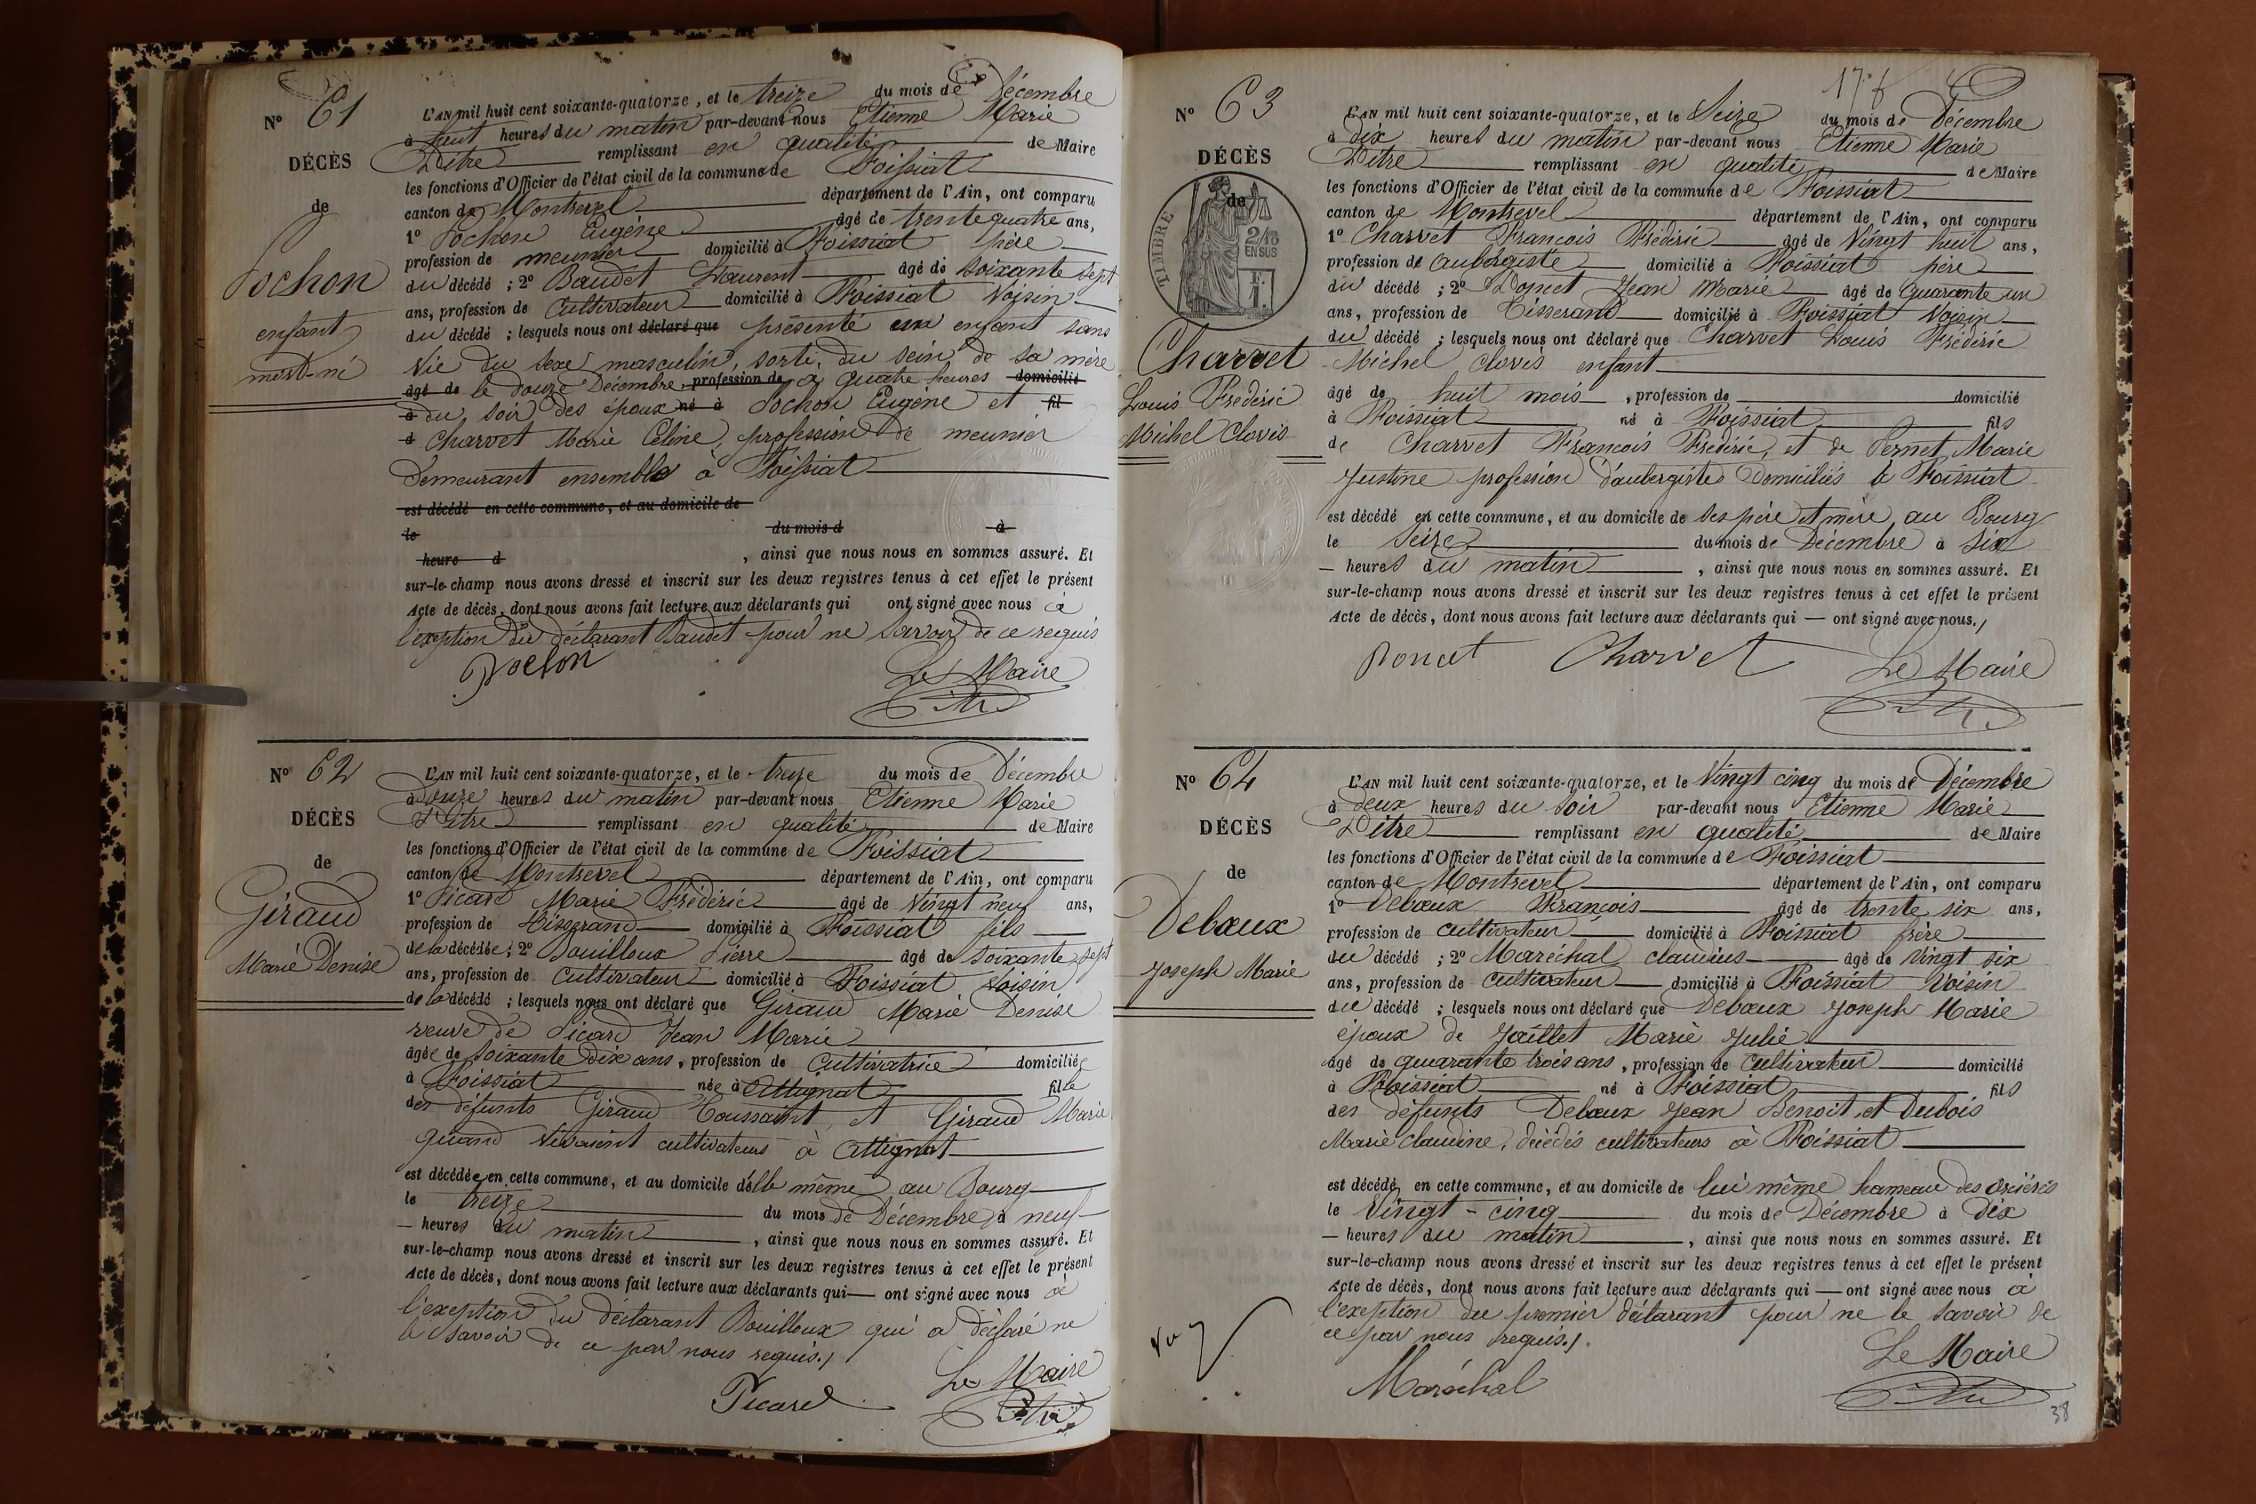 N° 61
DÉCÈS
de
Pochon
enfant
mort-né
L'AN mil huit cent soixante-quatorze, et le treize du mois de Décembre
à huit heures du matin par-devant nous Etienne Marie
Pitre remplissant en qualité de Maire
les fonctions d'Officier de l'état civil de la commune de Foissiat
canton de Montrevel département de l'Ain, ont comparu
1° Pochon Eugène âgé de trente quatre ans,
profession de meunier domicilié à Foissiat père
du décédé ; 2° Baudet Laurent âgé de soixante sept
ans, profession de cultivateur domicilié à Foissiat Voisin
du décédé ; lesquels nous ont déclaré que présenté un enfant sans
Vie du sexe masculin, sorti du sein de sa mère
âgé de le douze Décembre profession de à quatre heures domicilié
à du soir des époux né à Pochon Eugène et fil
d Charvet Marie Céline, profession de meunier
Demeurant ensemble à Foissiat
est décédé en cette commune, et au domicile de
le du mois d à
heure d , ainsi que nous nous en sommes assuré. Et
sur-le-champ nous avons dressé et inscrit sur les deux registres tenus à cet effet le présent
Acte de décès, dont nous avons fait lecture aux déclarants qui ont signé avec nous à
l'exeption du déclarant Baudet pour ne savoir de ce requis
Pochon
Le Maire
N° 62
DÉCÈS
de
Giraud
Marie Denise
L'AN mil huit cent soixante-quatorze, et le treize du mois de Décembre
à onze heures du matin par-devant nous Etienne Marie
Pitre remplissant en qualité de Maire
les fonctions d'Officier de l'état civil de la commune de Foissiat
canton de Montrevel département de l'Ain, ont comparu
1° Picard Marie Frédéric âgé de Vingt neuf ans,
profession de Tisserand domicilié à Foissiat fils
de la décédée ; 2° Bouilloux Pierre âgé de soixante sept
ans, profession de cultivateur domicilié à Foissiat Voisin
de la décédé ; lesquels nous ont déclaré que Giraud Marie Denise
veuve de Picard Jean Marie
âgée de soixante dix ans, profession de cultivatrice domiciliée
à Foissiat née à Attignat fille
des défunts Giraud Toussaint, et Giraud Marie
quand vivaient cultivateurs à Attignat
est décédée en cette commune, et au domicile d'elle même au Bourg
le treize du mois de Décembre à neuf
heures du matin , ainsi que nous nous en sommes assuré. Et
sur-le-champ nous avons dressé et inscrit sur les deux registres tenus à cet effet le présent
Acte de décès, dont nous avons fait lecture aux déclarants qui ont signé avec nous à
l'exeption du déclarant Bouilloux qui a déclaré ne
le savoir de ce par nous requis./
Picard
Le Maire
N° 63
DÉCÈS
de
TIMBRE
2/10
EN SUS
Charvet
Louis Frédéric
Michel Clovis
L'AN mil huit cent soixante-quatorze, et le Seize du mois de Décembre
à dix heures du matin par-devant nous Etienne Marie
Pitre remplissant en qualité de Maire
les fonctions d'Officier de l'état civil de la commune de Foissiat
canton de Montrevel département de l'Ain, ont comparu
1° Charvet François Frédéric âgé de Vingt huit ans,
profession de aubergiste domicilié à Foissiat père
du décédé ; 2° Poncet Jean Marie âgé de quarante un
ans, profession de Tisserand domicilié à Foissiat Voisin
du décédé ; lesquels nous ont déclaré que Charvet Louis Frédéric
Michel clovis enfant
âgé de huit mois , profession de domicilié
à Foissiat né à Foissiat fils
de Charvet François Frédéric, et de Pernet Marie
Justine profession d'aubergistes Domiciliés à Foissiat
est décédé en cette commune, et au domicile de ses père et mère, au Bourg
le Seize du mois de Décembre à six
heures du matin , ainsi que nous nous en sommes assuré. Et
sur-le-champ nous avons dressé et inscrit sur les deux registres tenus à cet effet le présent
Acte de décès, dont nous avons fait lecture aux déclarants qui — ont signé avec nous./
Poncet Charvet Le Maire
N° 64
DÉCÈS
de
Debœux
Joseph Marie
L'AN mil huit cent soixante-quatorze, et le Vingt cinq du mois de Décembre
à Deux heures du soir par-devant nous Etienne Marie
Pitre remplissant en qualité de Maire
les fonctions d'Officier de l'état civil de la commune de Foissiat
canton de Montrevel département de l'Ain, ont comparu
1° Debœux François âgé de trente six ans,
profession de cultivateur domicilié à Foissiat frère
du décédé ; 2° Maréchal claudius âgé de Vingt six
ans, profession de cultivateur domicilié à Foissiat Voisin
du décédé ; lesquels nous ont déclaré que Debœux Joseph Marie
époux de Jaillet Marie Julie
âgé de quarante trois ans, profession de cultivateur domicilié
à Foissiat né à Foissiat fils
des défunts Debœux Jean Benoit, et Dubois
Marie claudine, décédés cultivateurs à Foissiat
est décédé en cette commune, et au domicile de lui même hameau des
le Vingt-cinq du mois de Décembre à Dix
heures du matin , ainsi que nous nous en sommes assuré. Et
sur-le-champ nous avons dressé et inscrit sur les deux registres tenus à cet effet le présent
Acte de décès, dont nous avons fait lecture aux déclarants qui — ont signé avec nous à
l'exeption du premier déclarant pour ne le savoir de
ce par nous requis./.
Maréchal
Le Maire
38